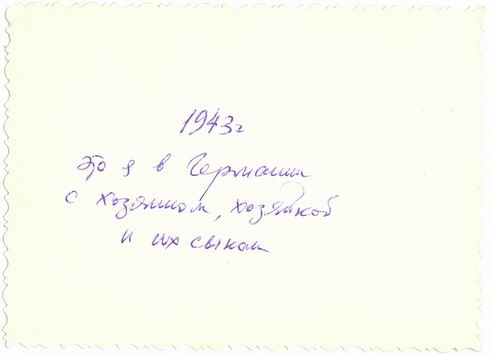 1943г
это я в Германии
с хозяином, хозяйкой
и их сыном